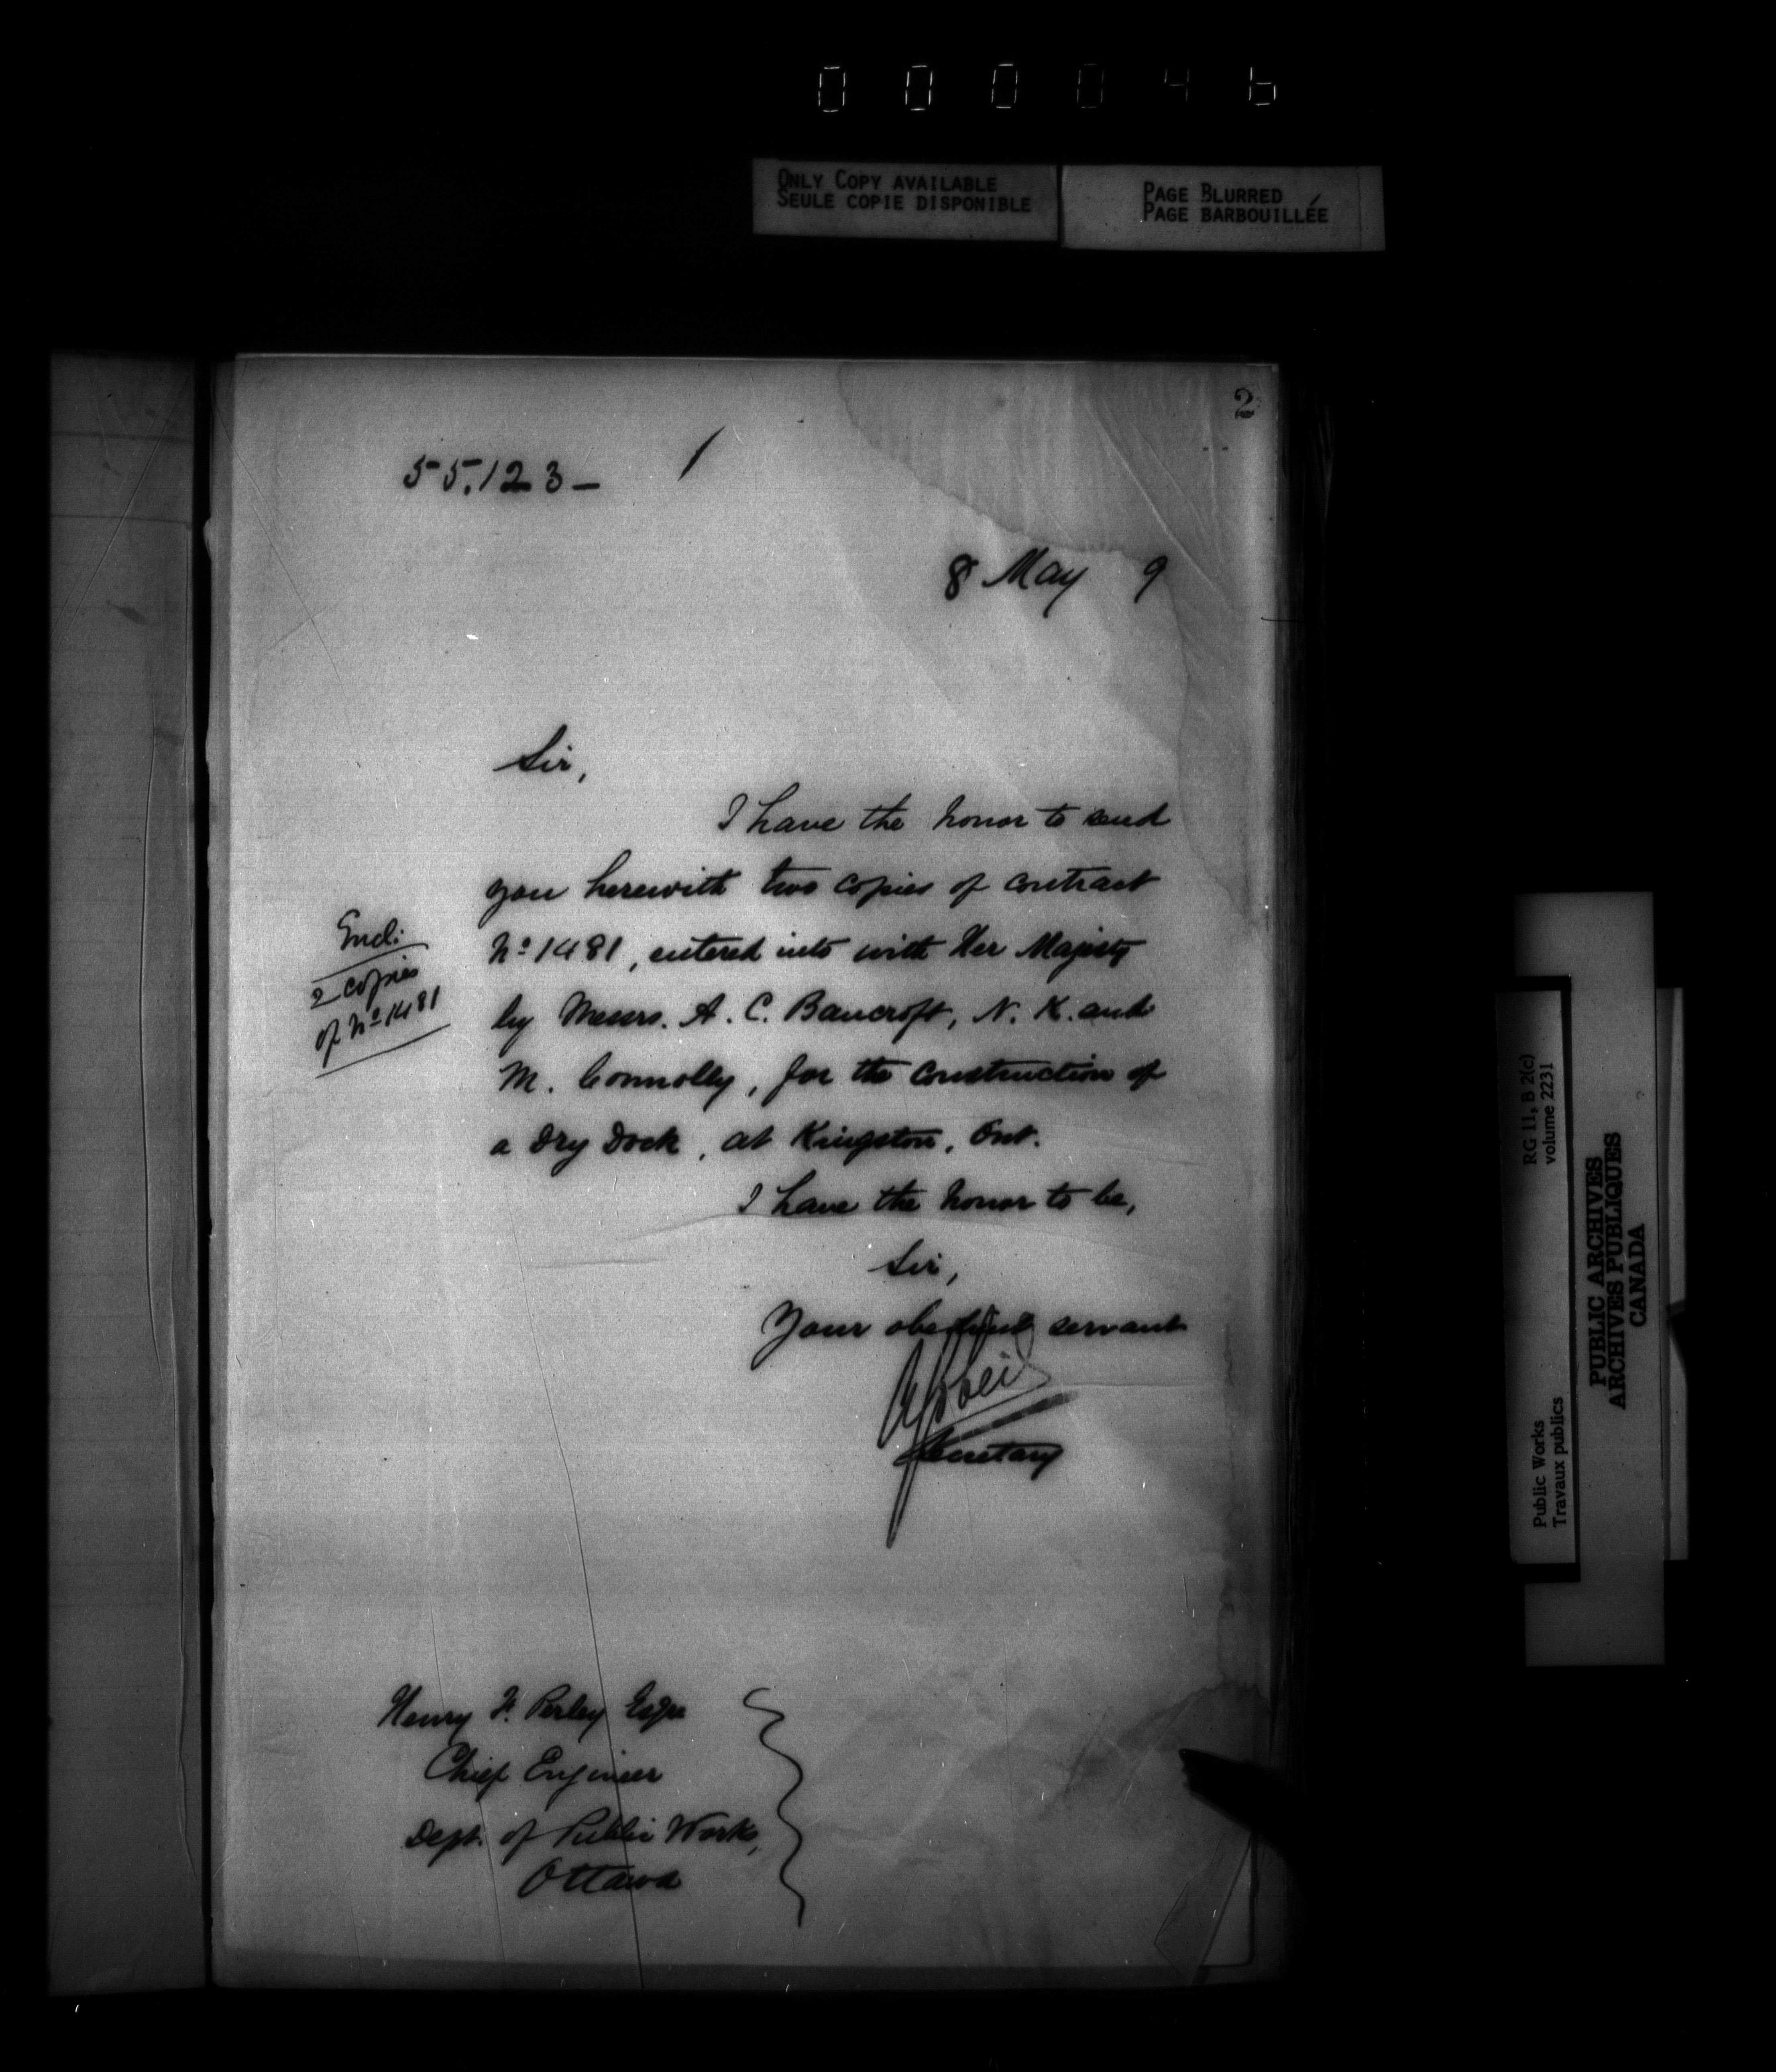 000046
ONLY COPY AVAILABLE
SEULE COPIE DISPONIBLE
PAGE BLURRED
PAGE BARBOUILLÉE
2
55.123–
1
8 May 9
Sir,
I have the honor to send
you herewith two copies of contract
Nº 1481, entered into with Her Majesty
by Messrs. A. C. Bancroft, N. K. and
M. Connolly, for the construction of
a Dry Dock, at Kingston, Ont.
Encl:
2 copies
of Nº 1481
I have the honor to be,
Sir,
Your obedient servant
Secretary
Henry F. Perley Esqre
Chief Engineer
Dept. of Public Works,
Ottawa
RG 11, B 2(c)
volume 2231
Public Works
Travaux publics
PUBLIC ARCHIVES
ARCHIVES PUBLIQUES
CANADA